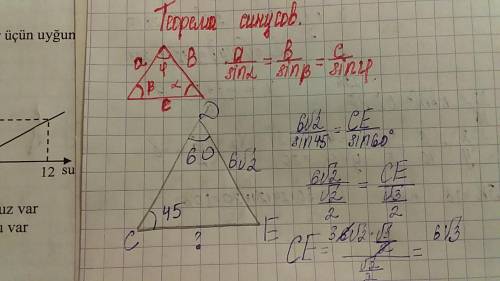 r üçün uyğun
12 su
uz var
ı var
Теорема синусов.
a B φ β α c
a/sinα = B/sinβ = C/sinφ
D
60 6√2
45
C ? E
6√2/sin45 = CE/sin60°
6√2/(√2/2) = CE/(√3/2)
CE = (3 6√2 · √3/2)/(√2/2) = 6√3